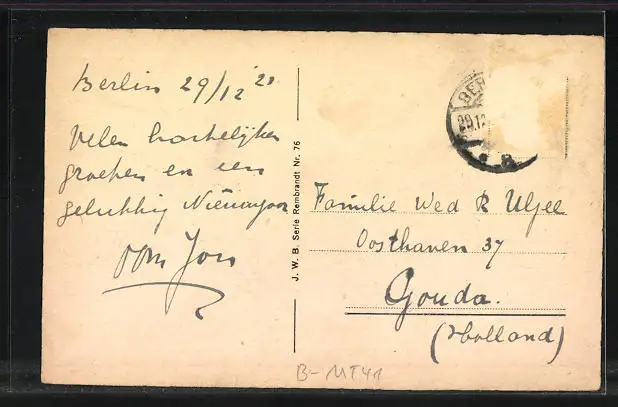 Berlin 29/12 '21
Velen hartelijken
groeten en een
gelukkig Nieuwjaar
Oom Jon
J. W. B. Serie Rembrandt Nr. 76
BER
29.12
Familie Wed R Uljee
Oosthaven 37
Gouda.
(Holland)
B-MT41